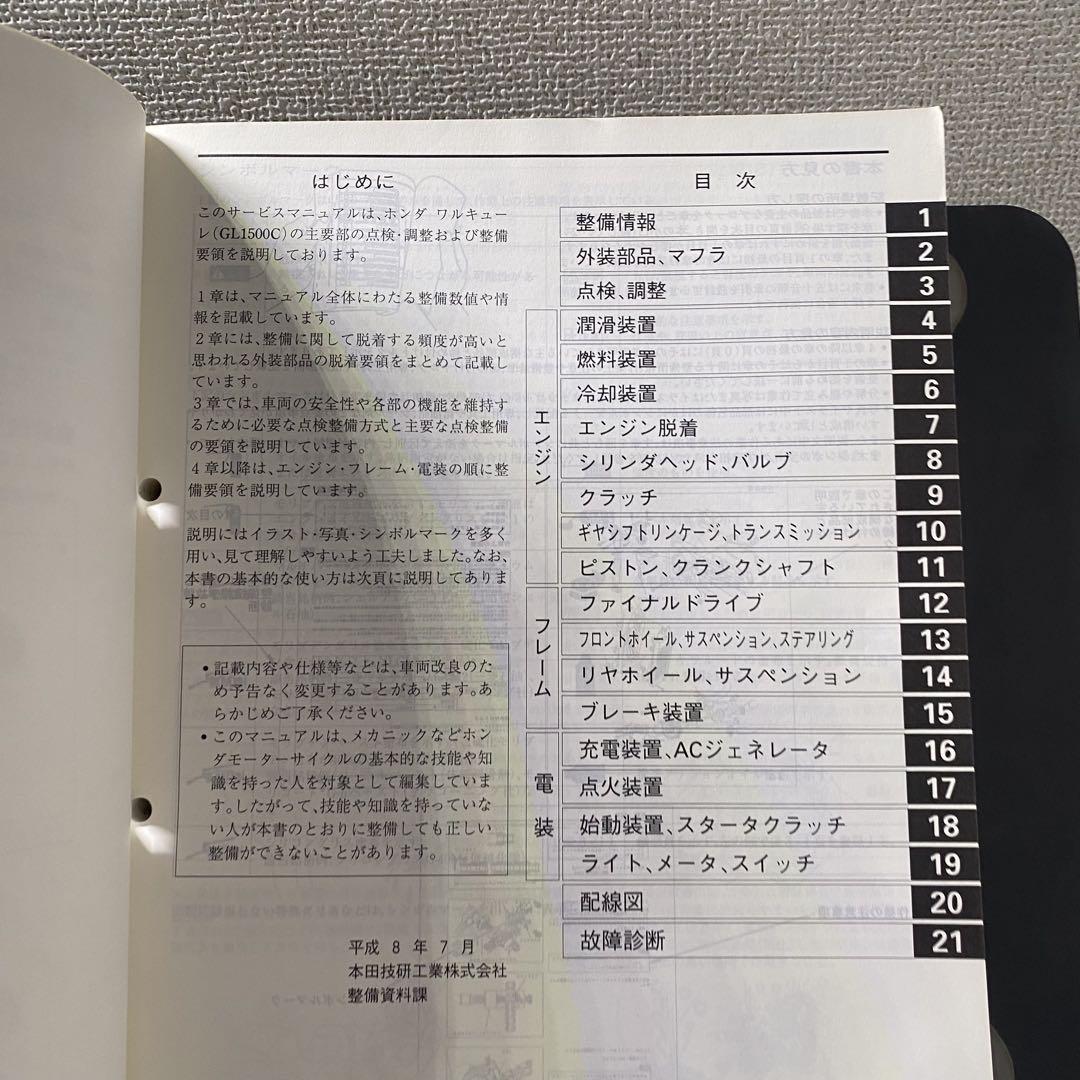 はじめに
このサービスマニュアルは、ホンダ ワルキュー
レ(GL1500C)の主要部の点検・調整および整備
要領を説明しております。
1章は、マニュアル全体にわたる整備数値や情
報を記載しています。
2章には、整備に関して脱着する頻度が高いと
思われる外装部品の脱着要領をまとめて記載し
ています。
3章では、車両の安全性や各部の機能を維持す
るために必要な点検整備方式と主要な点検整備
の要領を説明しています。
4章以降は、エンジン・フレーム・電装の順に整
備要領を説明しています。
説明にはイラスト・写真・シンボルマークを多く
用い、見て理解しやすいよう工夫しました。なお、
本書の基本的な使い方は次頁に説明してありま
す。
• 記載内容や仕様等などは、車両改良のた
め予告なく変更することがあります。あ
らかじめご了承ください。
• このマニュアルは、メカニックなどホン
ダモーターサイクルの基本的な技能や知
識を持った人を対象として編集していま
す。したがって、技能や知識を持っていな
い人が本書のとおりに整備しても正しい
整備ができないことがあります。
平成 8 年 7 月
本田技研工業株式会社
整備資料課
目 次
整備情報 1
外装部品、マフラ 2
点検、調整 3
エンジン
潤滑装置 4
燃料装置 5
冷却装置 6
エンジン脱着 7
シリンダヘッド、バルブ 8
クラッチ 9
ギヤシフトリンケージ、トランスミッション 10
ピストン、クランクシャフト 11
フレーム
ファイナルドライブ 12
フロントホイール、サスペンション、ステアリング 13
リヤホイール、サスペンション 14
ブレーキ装置 15
電装
充電装置、ACジェネレータ 16
点火装置 17
始動装置、スタータクラッチ 18
ライト、メータ、スイッチ 19
配線図 20
故障診断 21